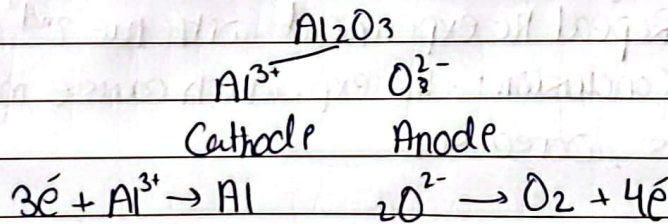 Al2O3
Al³⁺ O²⁻
Cathode Anode
3é + Al³⁺ → Al 2O²⁻ → O2 + 4é